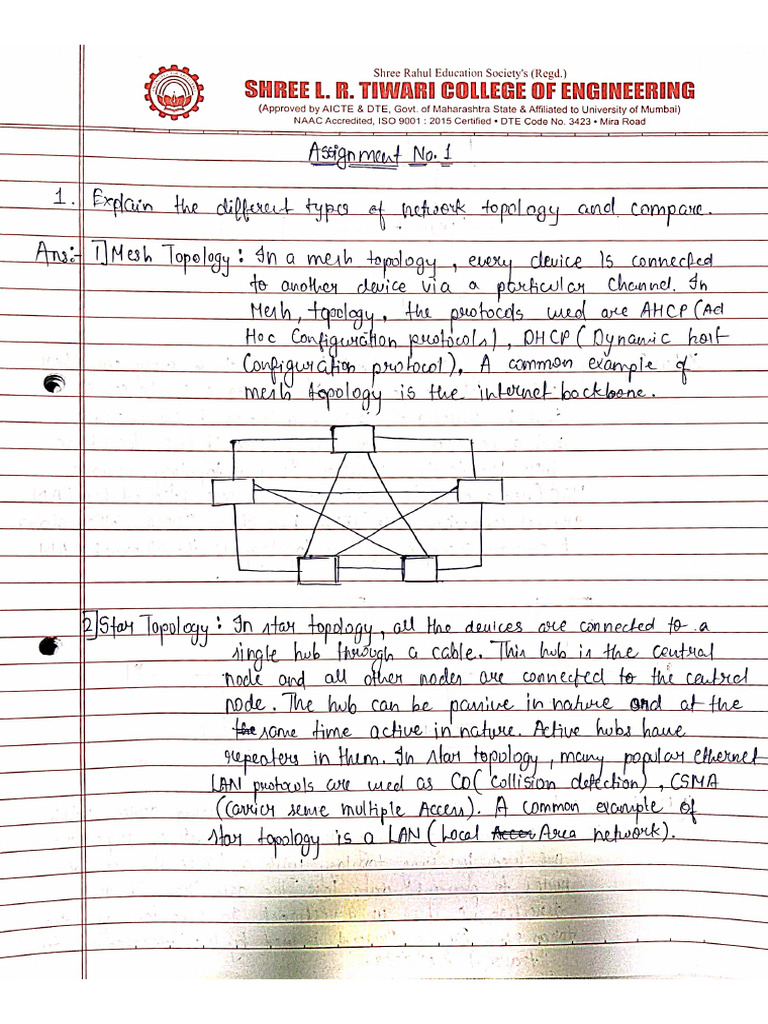 Shree Rahul Education Society's (Regd.)
SHREE L. R. TIWARI COLLEGE OF ENGINEERING
(Approved by AICTE & DTE, Govt. of Maharashtra State & Affiliated to University of Mumbai)
NAAC Accredited, ISO 9001 : 2015 Certified • DTE Code No. 3423 • Mira Road
Assignment No. 1
1. Explain the different types of network topology and compare.
Ans:- 1] Mesh Topology : In a mesh topology, every device is connected
to another device via a particular channel. In
Mesh, topology, the protocols used are AHCP (Ad
Hoc Configuration protocols), DHCP (Dynamic host
Configuration protocol). A common example of
mesh topology is the internet backbone.
2] Star Topology : In star topology, all the devices are connected to a
single hub through a cable. This hub is the central
node and all other nodes are connected to the central
node. The hub can be passive in nature and at the
the same time active in nature. Active hubs have
repeaters in them. In star topology, many popular ethernet
LAN protocols are used as CD( Collision detection), CSMA
(Carrier sense multiple Access). A common example of
star topology is a LAN (Local Acces Area network).